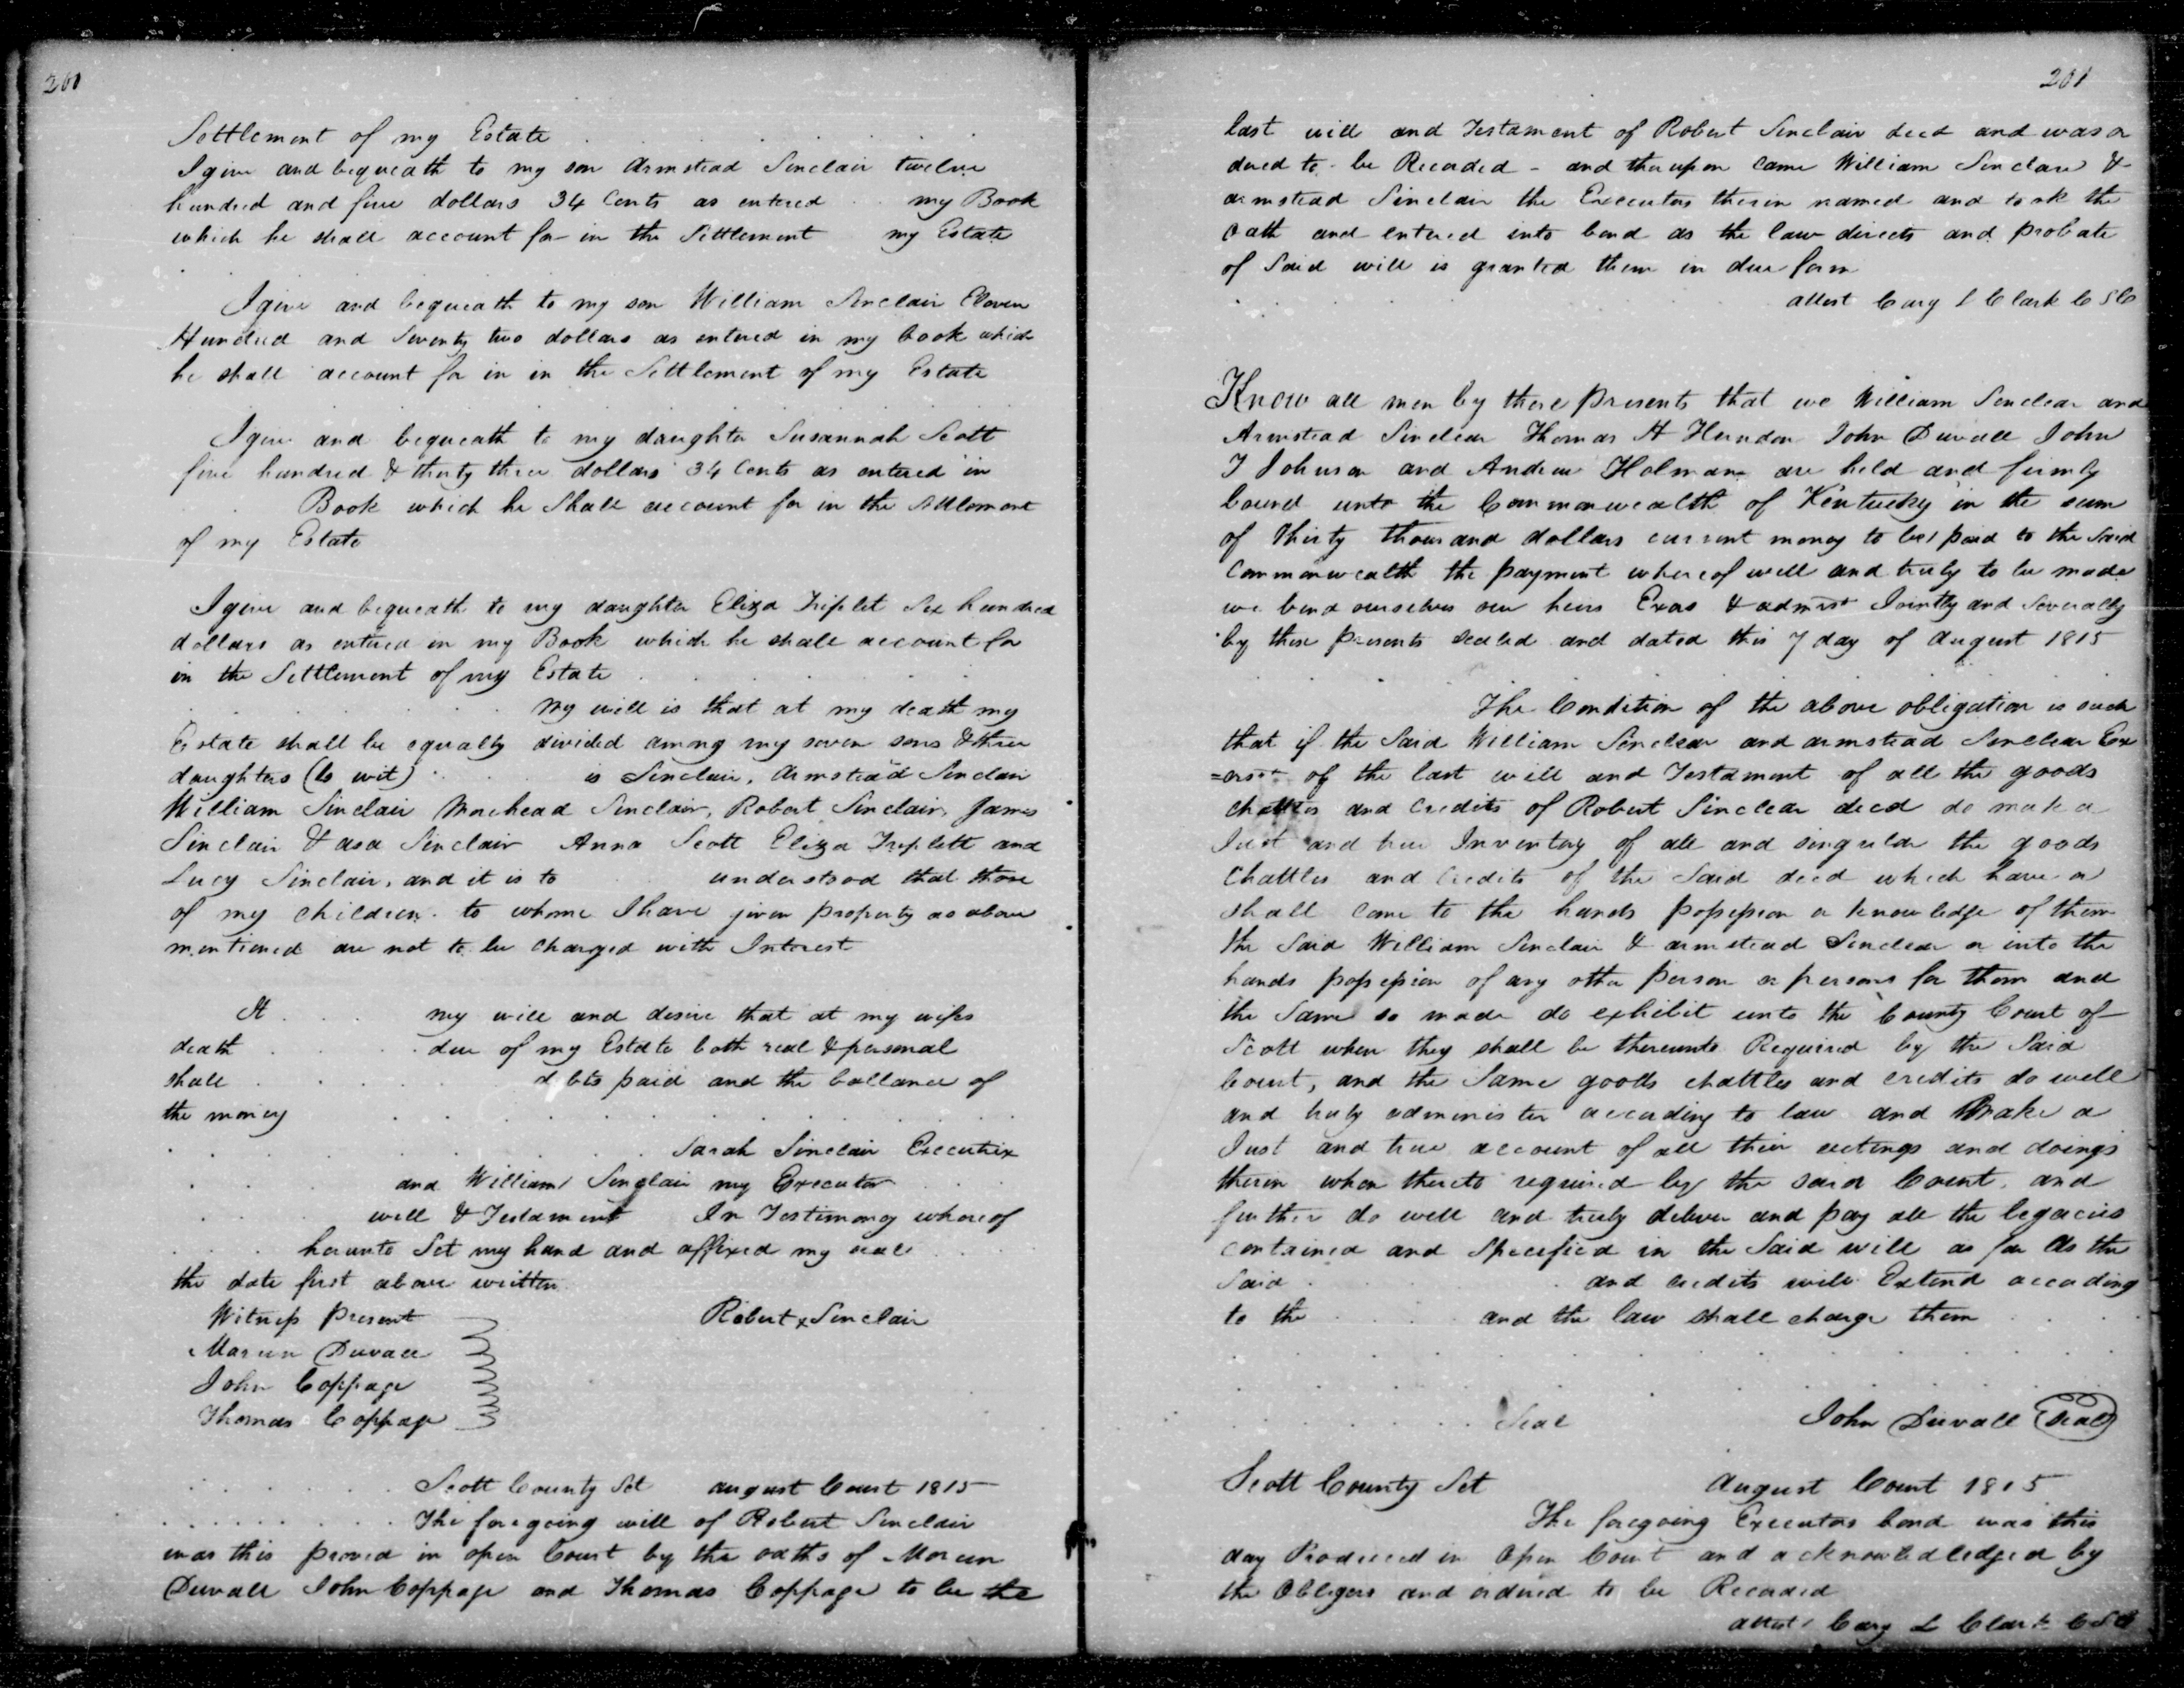 200
Settlement of my Estate
I give and bequeath to my son Armstead Sinclair twelve
hundred and five dollars 34 Cents as entered . . my Book
which he shall account for in the Settlement my Estate
I give and bequeath to my son William Sinclair Eleven
Hundred and Seventy two dollars as entered in my book which
he shall account for in in the Settlement of my Estate
I give and bequeath to my daughter Susannah Scott
five hundred & thirty three dollars 34 Cents as entered in
Book which he Shall account for in the Settlement
of my Estate
I give and bequeath to my daughter Eliza Triplet Six hundred
dollars as entered in my Book which he shall account for
in the Settlement of my Estate
my will is that at my death my
Estate shall be equally divided among my seven sons & three
daughters (to wit) . . is Sinclair, Armstead Sinclair
William Sinclair Morehead Sinclair, Robert Sinclair, James
Sinclair & asa Sinclair Anna Scott Eliza Triplett and
Lucy Sinclair, and it is to understood that those
of my children to whome I have given property as above
mentioned are not to be charged with Interest
It . . . my will and desire that at my wifes
death . . . . due of my Estate both real & personal
shall . . . . . d bts paid and the ballance of
the money . . . . . . . . .
. . . . . . . Sarah Sinclair Executrix
. . . and William Sinclair my Executor . . .
. . . will & Testament In Testimony whereof
. . . herunto Set my hand and affixed my seal . . .
the date first above written
Witness Present Robert x Sinclair
Maren Duvall
John Coppage
Thomas Coppage
. . . . . . Scott County Sct august Court 1815
. . . . . . . The foregoing will of Robert Sinclair
was this proved in open Court by the oaths of Maren
Duvall John Coppage and Thomas Coppage to be the
201
last will and Testament of Robert Sinclair decd and was or
dered to be Recorded - and thereupon came William Sinclare &
armstead Sinclair the Executors therein named and took the
oath and entered into bond as the law directs and probate
of Said will is granted them in due form
attest Cary L Clark C S C
Know all men by these presents that we William Sinclear and
Armstead Sinclear Thomas H Herndon John Duvall John
T Johnson and Andrew Holman are held and firmly
bound unto the Commonwealth of Kentucky in the sum
of thirty thousand dollars current money to be paid to the Said
Commonwealth the payment whereof well and truly to be made
we bend ourselves our heirs Exrs & admrs Jointly and Severally
by these presents sealed and dated this 7 day of August 1815
The Condition of the above obligation is such
that if the Said William Sinclear and armstead Sinclear Ex
=ors of the last will and Testament of all the goods
chattles and Credits of Robert Sinclear decd do make a
Just and true Inventory of all and singular the goods
Chattles and Credits of the Said decd which have or
shall come to the hands possession or knowledge of them
the Said William Sinclair & armstead Sinclear or into the
hands possession of any other person or persons for them and
the Same so made do exhibit unto the County Court of
Scott when they shall be thereunto Required by the Said
Court, and the Same goods chattles and credits do well
and truly administer according to law and Make a
Just and true account of all their actings and doings
therein when thereto required by the said Court, and
further do well and truly deliver and pay all the legacies
contained and Specified in the Said will as far As the
Said . . . . . and credits will Extend according
to the . . . . and the law shall charge them . . .
. . . . . . . Seal John Duvall Seal
Scott County Sct August Court 1815
The foregoing Executors bond was this
day Produced in Open Court and acknowledledged by
the Obligors and ordered to be Recorded
attest Cary L Clark C S C